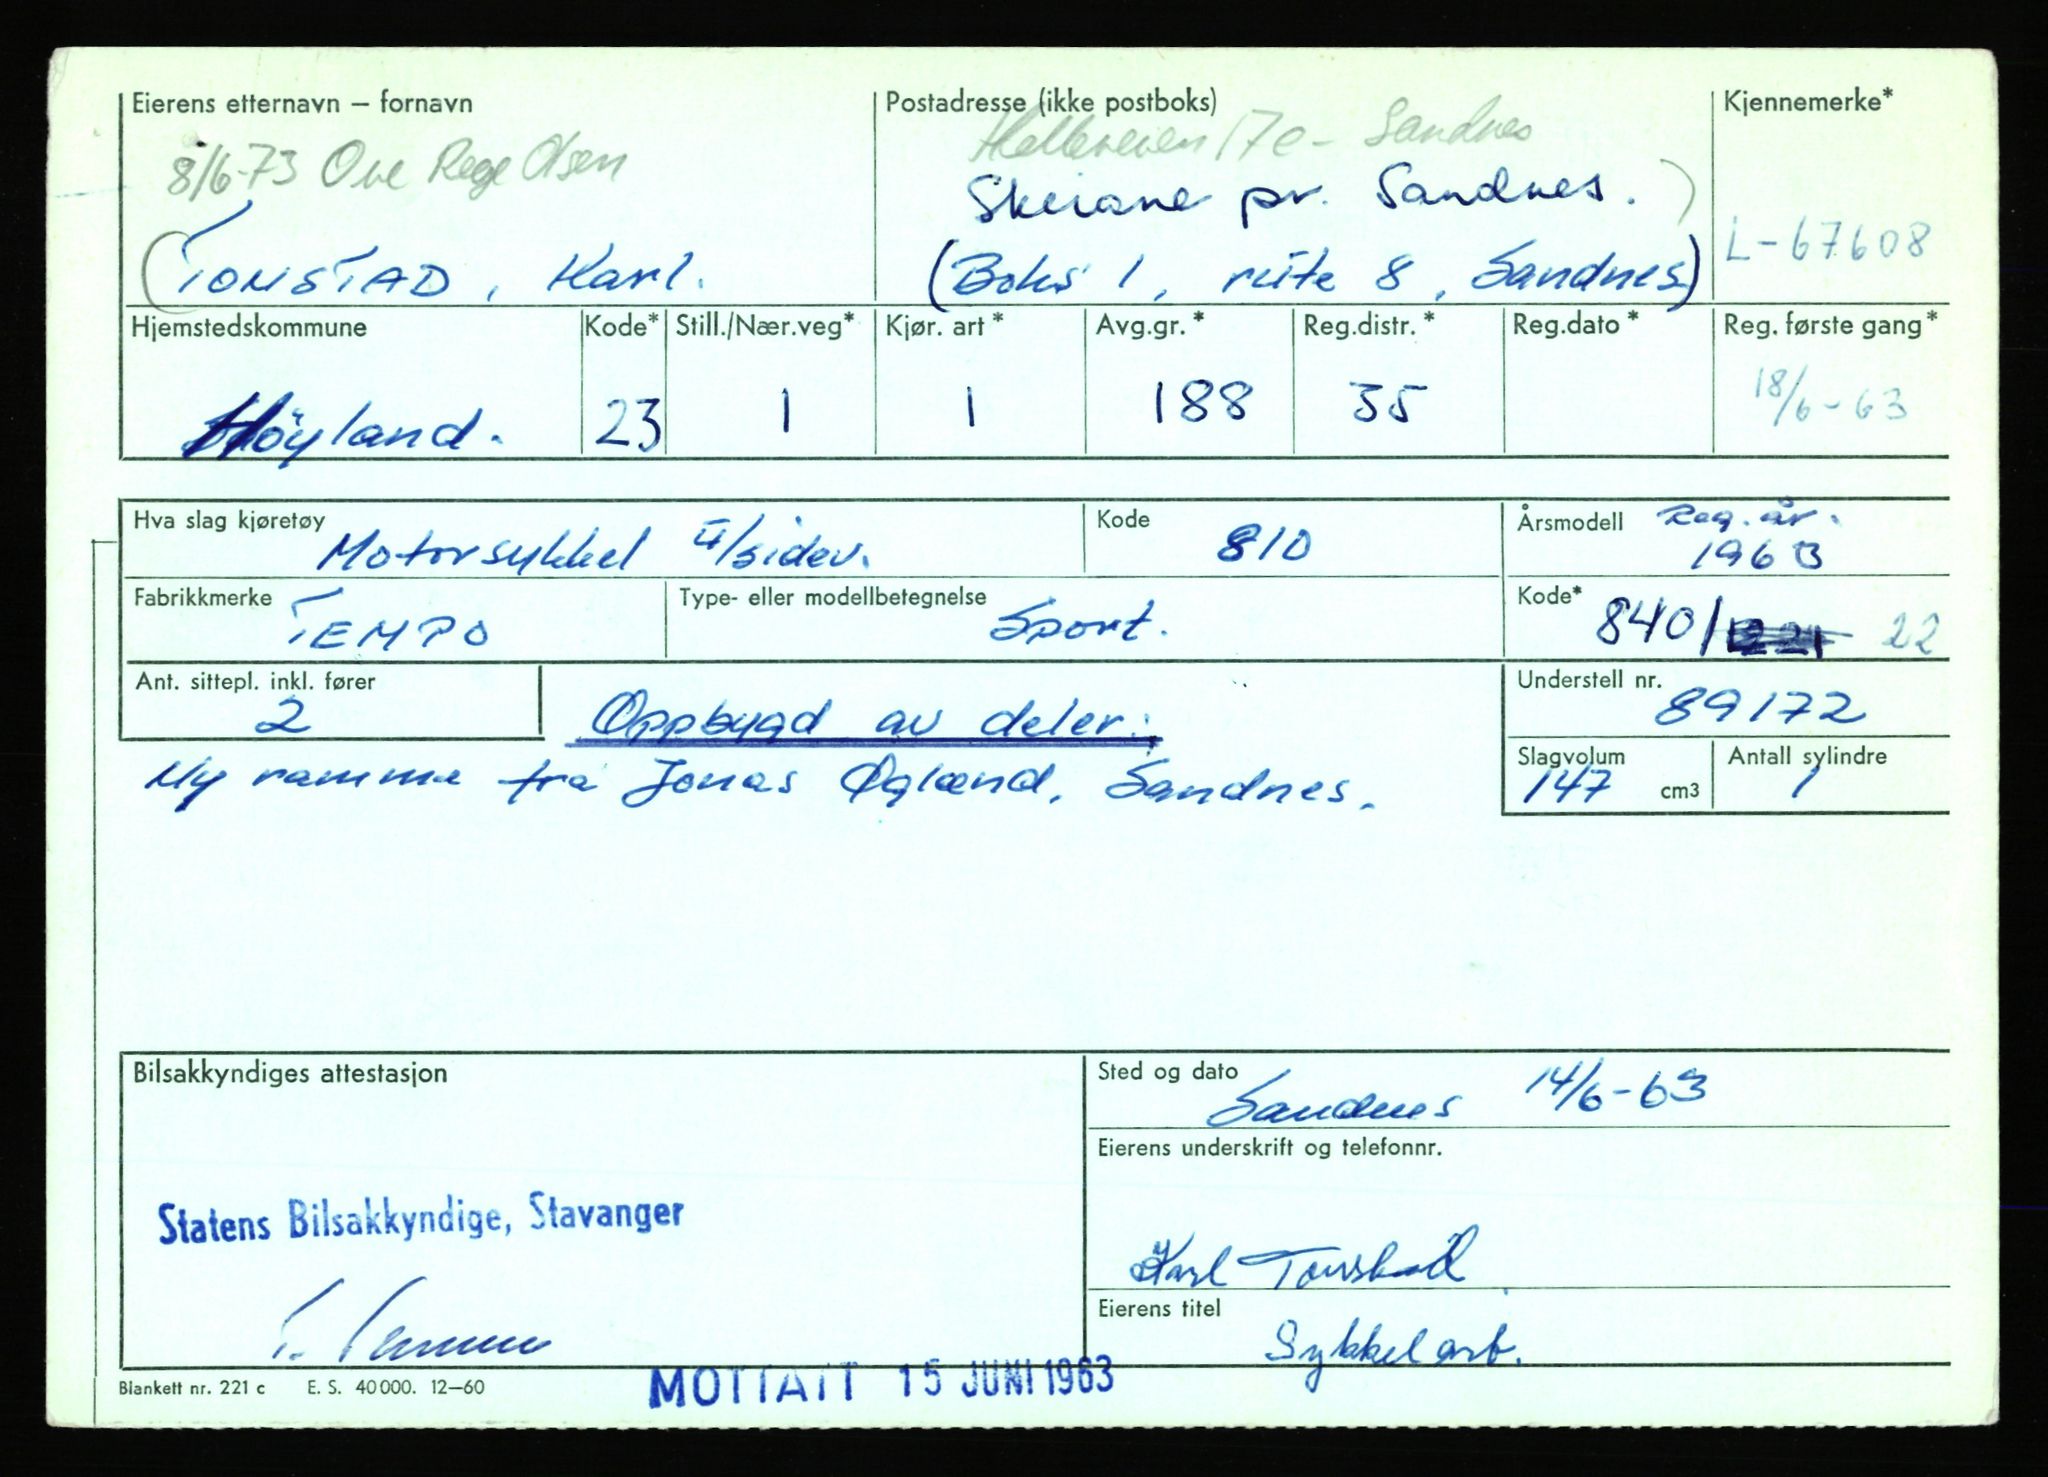 Eierens etternavn – fornavn
Postadresse (ikke postboks)
Kjennemerke*
8/6-73 Ove Rege Olsen
17c - Sandnes
Skeiane pr. Sandnes.)
(TONSTAD, Karl.
(Boks 1, rute 8, Sandnes)
L-67608
Hjemstedskommune
Kode*
Still./Nær.veg*
Kjør. art*
Avg.gr.*
Reg.distr.*
Reg.dato*
Reg. første gang*
Höyland.
23
1
1
188
35
18/6-63
Hva slag kjøretøy
Motorsykkel u/sidev.
Kode
810
Årsmodell
Reg. år.
1963
Fabrikkmerke
TEMPO
Type- eller modellbetegnelse
Sport.
Kode*
840/ 22
Ant. sittepl. inkl. fører
2
Oppbygd av deler:
Understell nr.
89172
Ny ramme fra Jonas Øglænd, Sandnes.
Slagvolum
147 cm3
Antall sylindre
1
Bilsakkyndiges attestasjon
Sted og dato
Sandnes 14/6-63
Eierens underskrift og telefonnr.
Statens Bilsakkyndige, Stavanger
Karl Tonstad
Eierens titel
Sykkelarb.
Blankett nr. 221 c E. S. 40 000. 12—60
MOTTATT 15 JUNI 1963